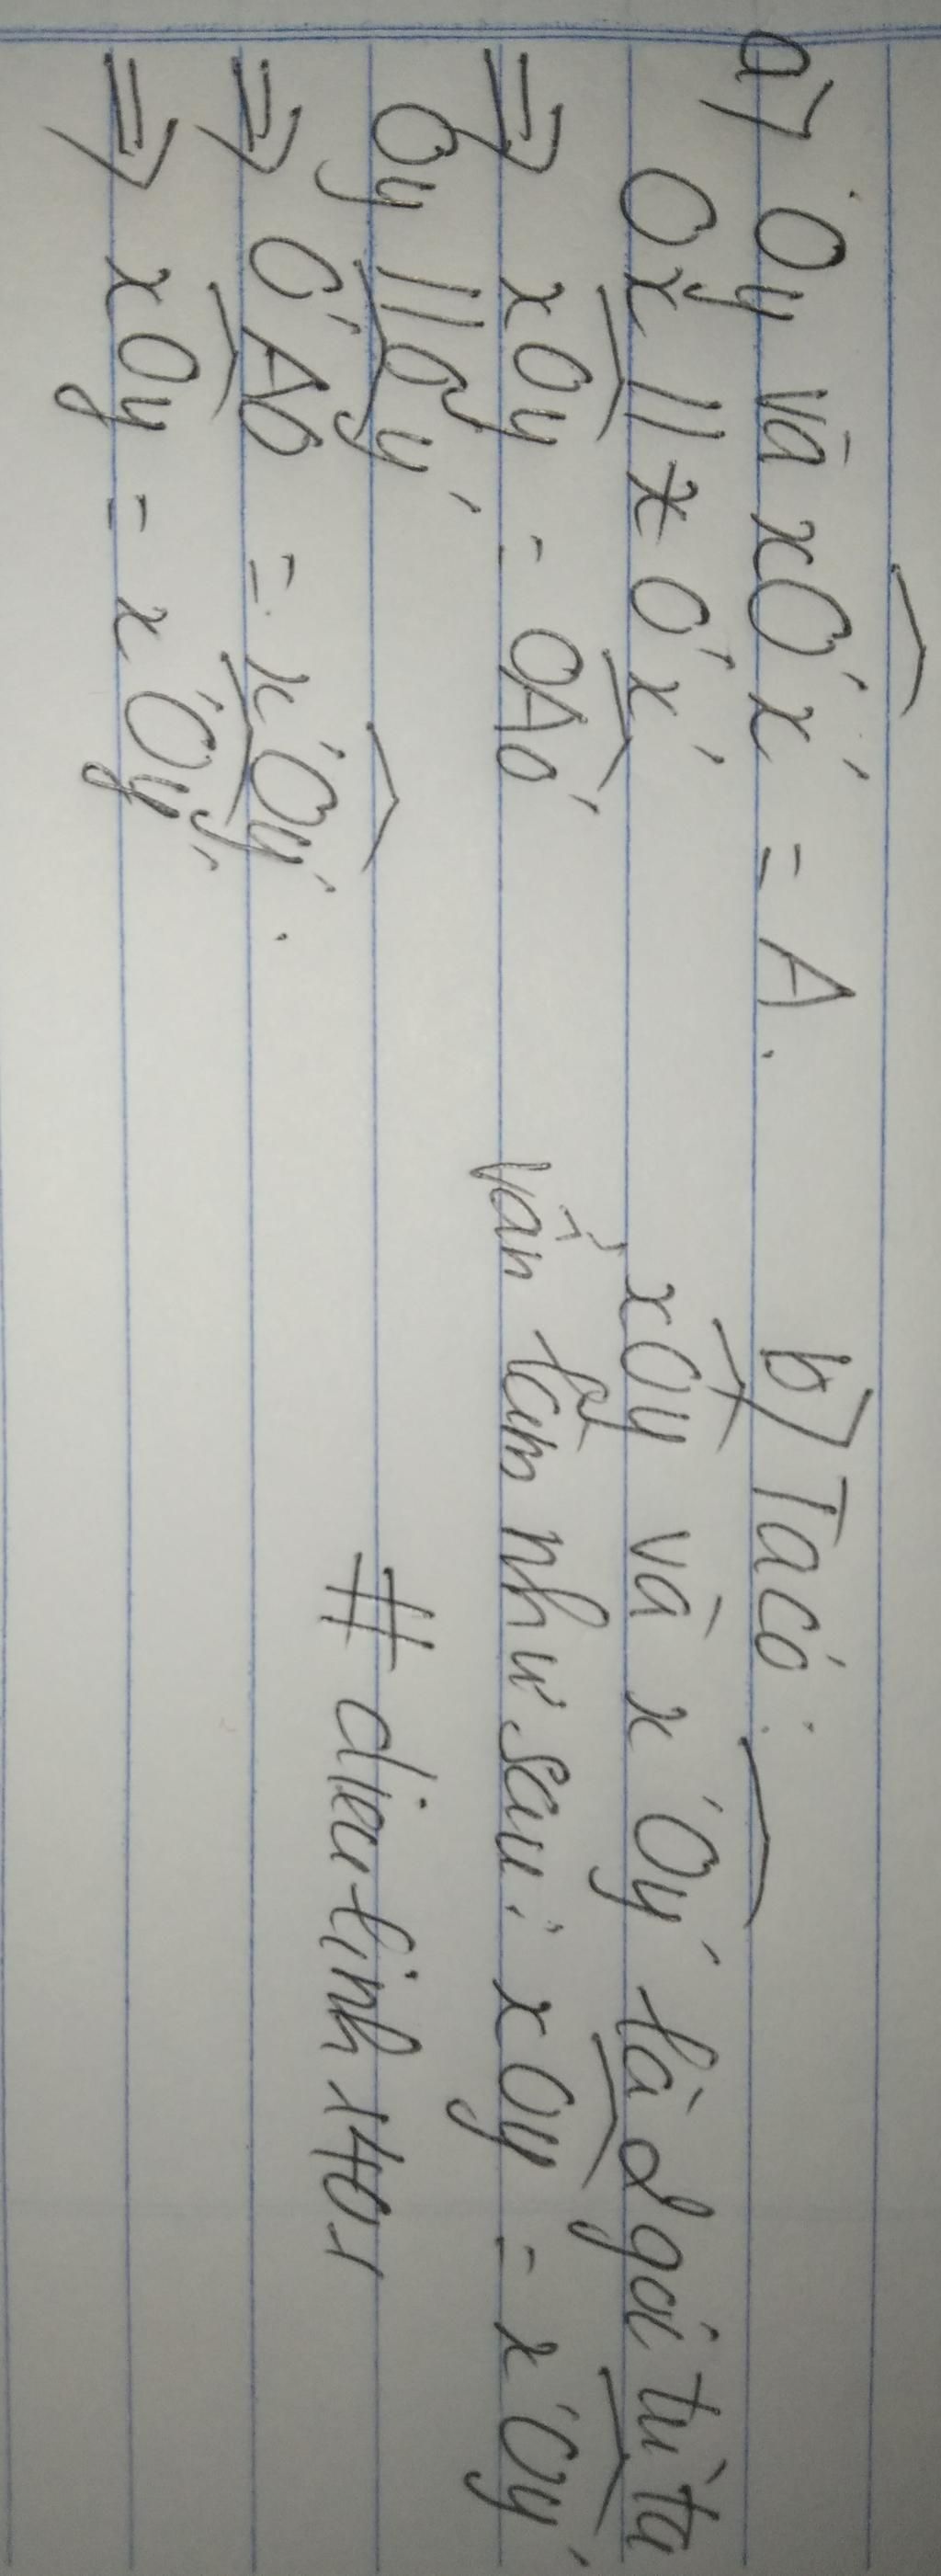 a) Oy và xO'x' = A.
Ox // x O'x'
=> xOy = OAO'
Oy // O'y'
=> O'AO = x'O'y'.
=> xOy = x'O'y'
b) Ta có:
xOy và x'O'y' là 2 góc tù ta
vẫn làm như sau: xOy = x'O'y'
# dieu-linh 1401